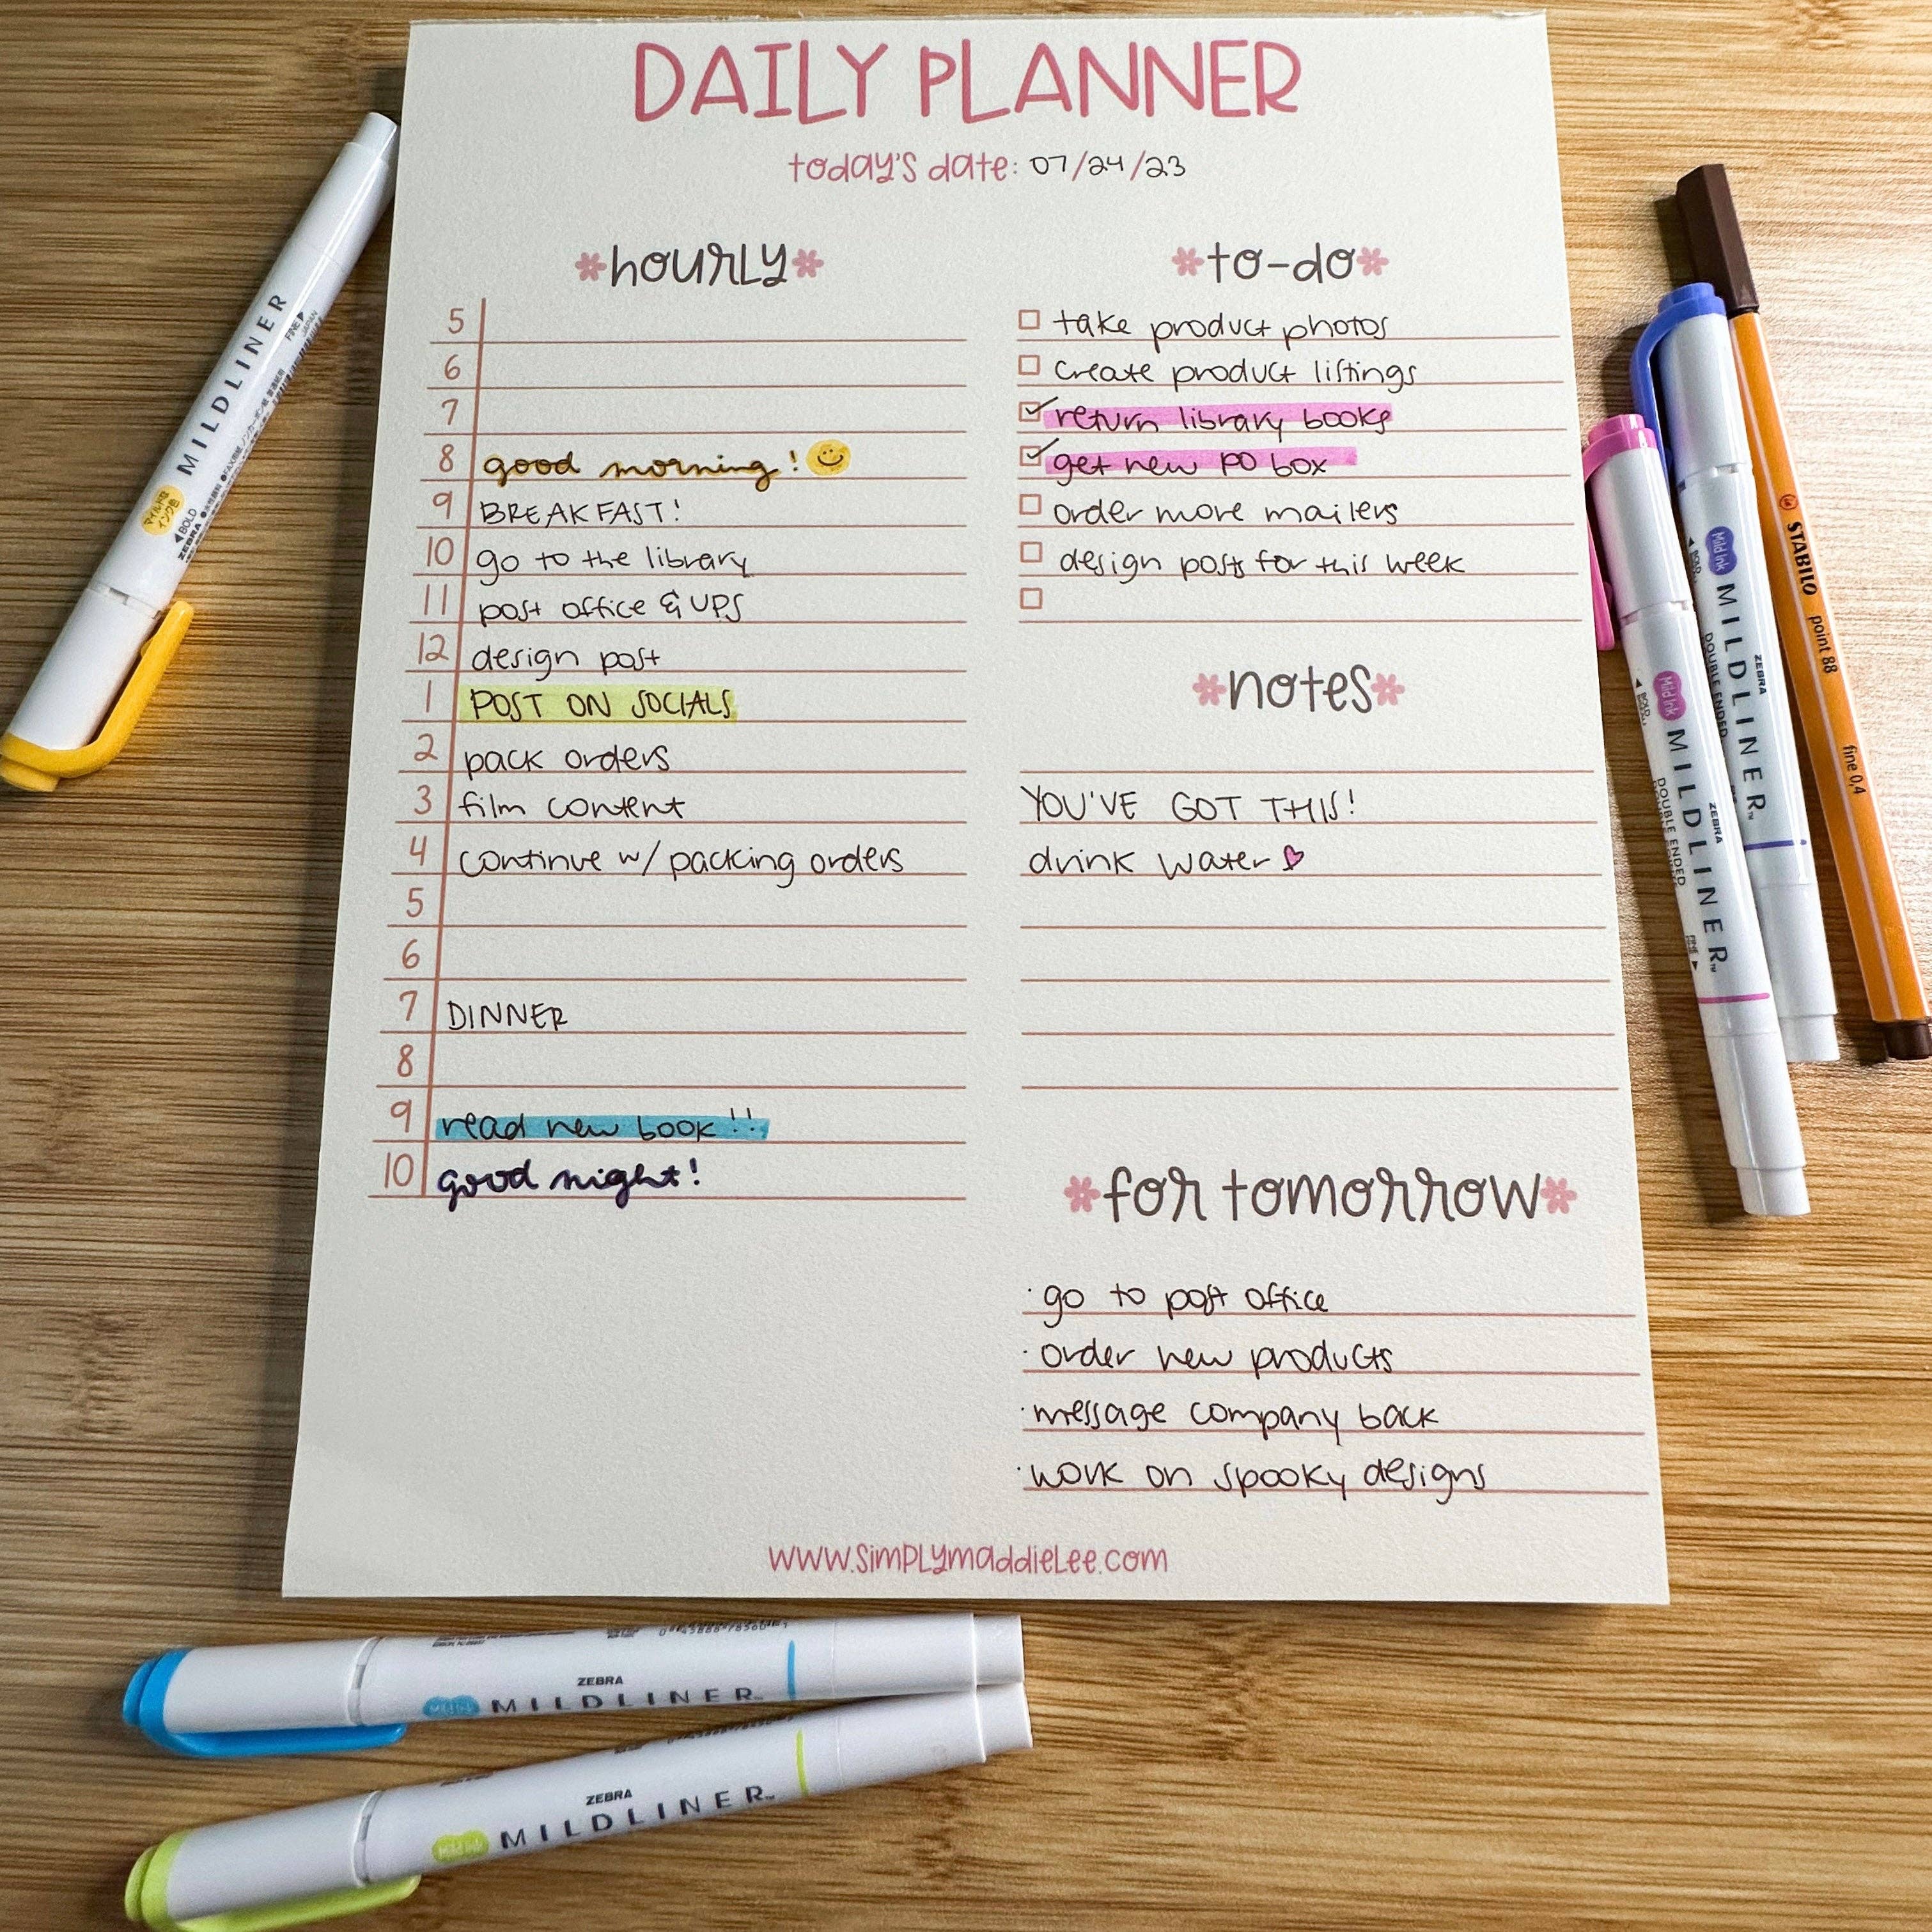 DAILY PLANNER
today's date: 07/24/23
hourly
5
6
7
8 good morning!
9 BREAKFAST!
10 go to the library
11 post office & UPS
12 design post
1 POST ON SOCIALS
2 pack orders
3 film content
4 continue w/ packing orders
5
6
7 DINNER
8
9 read new book!!
10 good night!
to-do
take product photos
create product listings
return library books
get new PO box
order more mailers
design posts for this week
notes
YOU'VE GOT THIS!
drink water
for tomorrow
· go to post office
· order new products
· message company back
· work on spooky designs
www.simplymaddielee.com
MILDLINER
FINE
JAPAN
BOLD
ZEBRA
マイルドな
インク色
STABILO point 88 fine 0,4
Mild Ink MILDLINER
ZEBRA
DOUBLE ENDED
Mild Ink MILDLINER
ZEBRA
DOUBLE ENDED
FINE
ZEBRA
MILDLINER
ZEBRA
Mild Ink MILDLINER